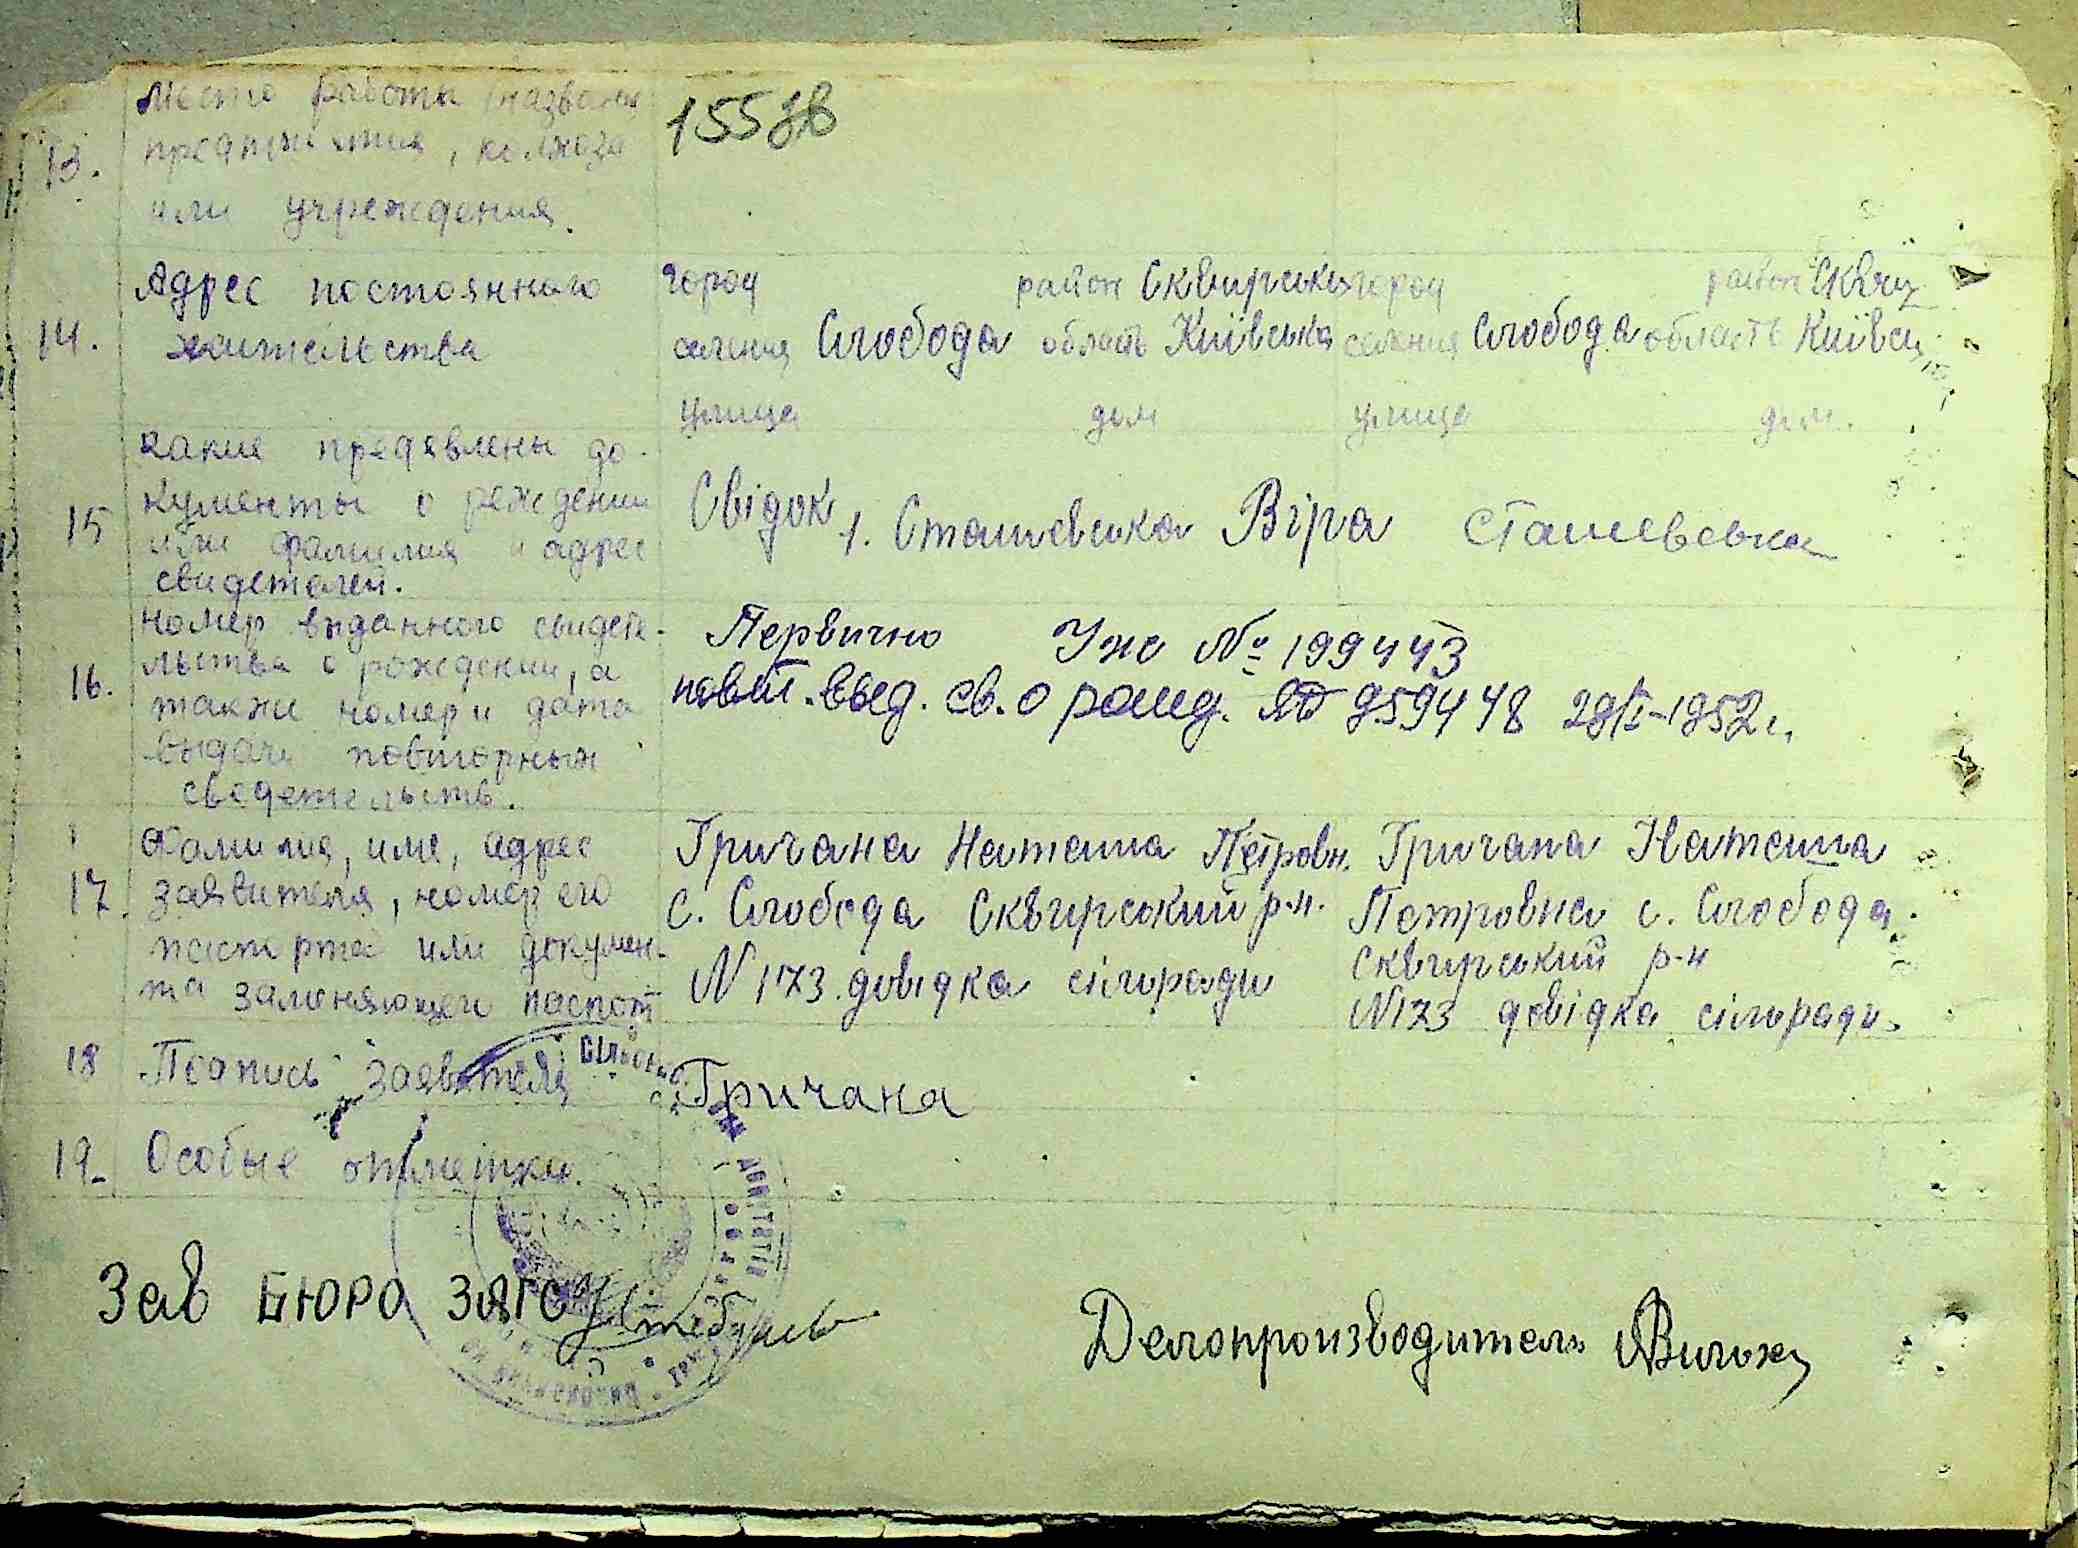 155зв
13. Место работы (название
предприятия, колхоза
или учреждения.
14. Адрес постоянного
жительства
город район Сквирський город район Сквир
селения Слобода область Київська селения Слобода область Київсь
улица дом улица дом.
15 какие предявлены до-
кументы о рождении
или фамилия и адрес
свидетелей.
Свідок 1. Сташевська Віра Сташевська
16. номер выданного свидете-
льства о рождении, а
также номер и дата
выдачи повторных
сведетельств.
Первично УЖ № 199443
повт. выд. св. о рожд. 959448 1952 г.
17. Фамилия, имя, адрес
заявителя, номер его
паспорта или докумен-
та заменяющего паспорт
Гричана Наташа Петровн. Гричана Наташа
с. Слобода Сквирський р-н. Петровна с. Слобода
Сквирський р-н
N 173 довідка сільради N173 довідка сільради.
18 Подпись заявителя Гричана
19. Особые отметки.
Зав БЮРО ЗАГС
Делопроизводитель